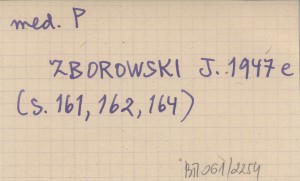 med. P
ZBOROWSKI J. 1947 e
(s. 161, 162, 164)
BП 061/2254